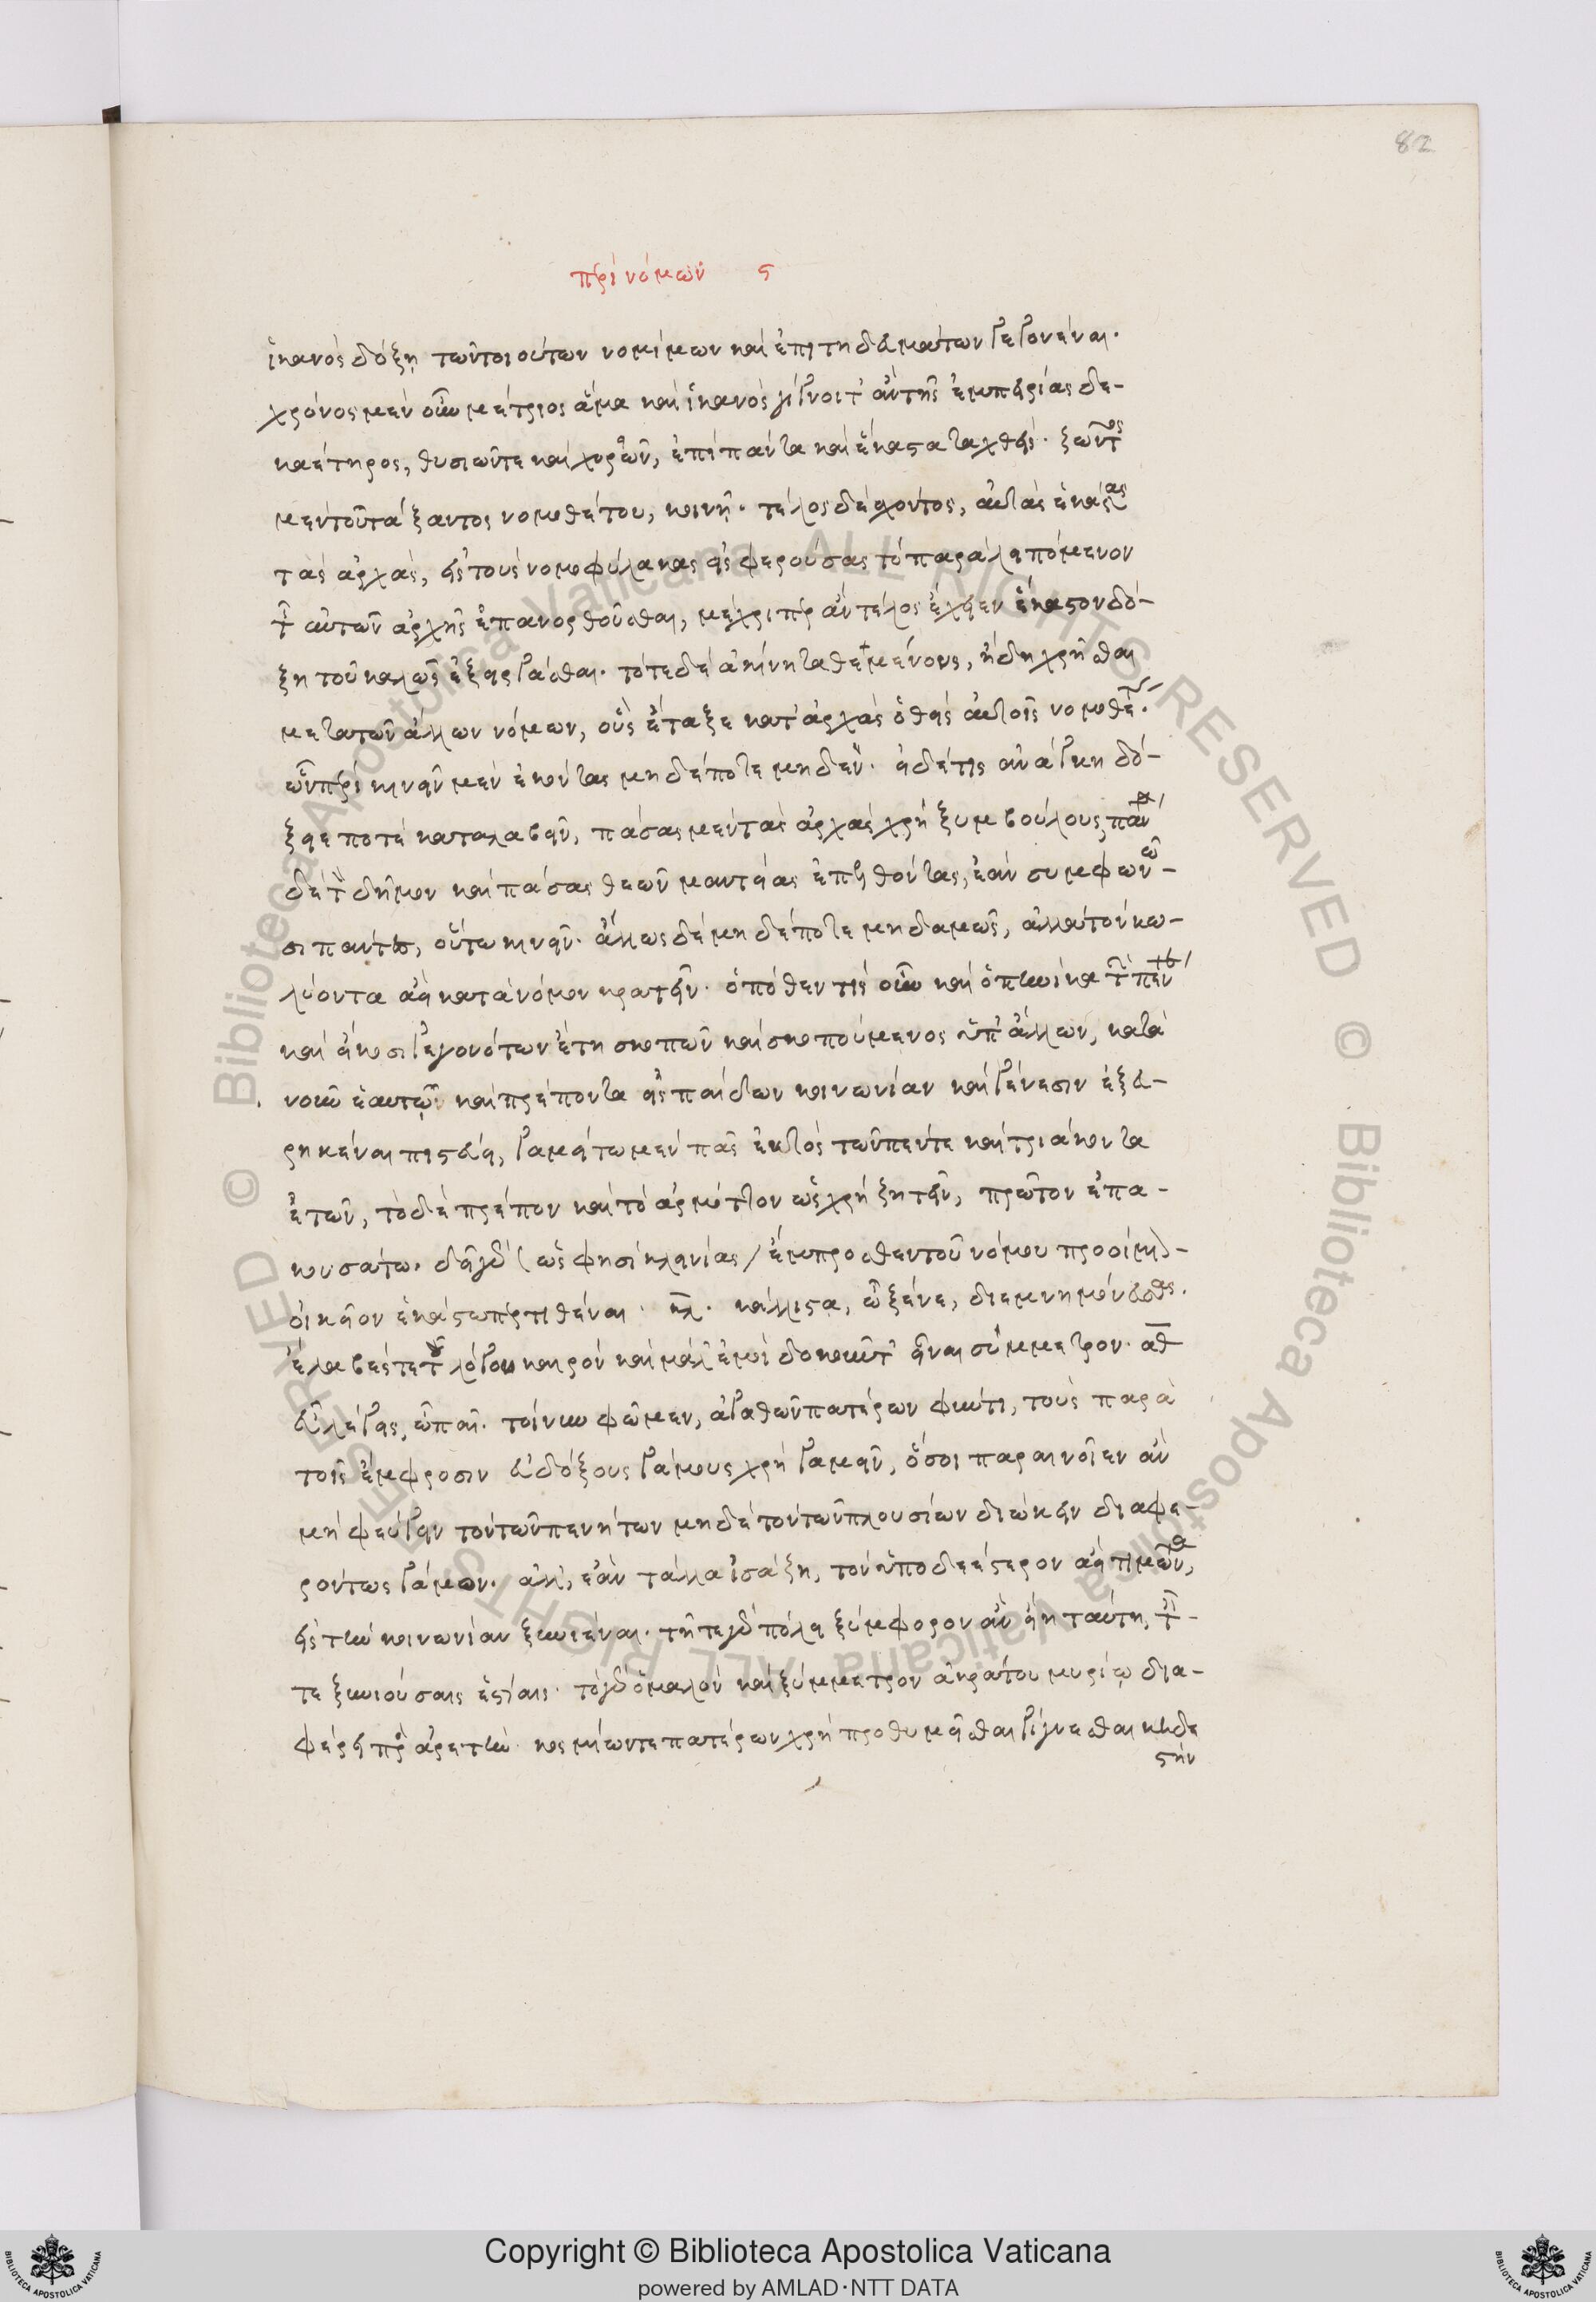 82
περὶ νόμων ϛ
ἱκανὸς δόξῃ τῶν τοιούτων νομίμων καὶ ἐπιτηδευμάτων γεγονέναι·
χρόνος μὲν οὖν μέτριος ἅμα καὶ ἱκανὸς γίγνοιτ' ἂν τῆς ἐμπειρίας δε-
καέτηρος, θυσιῶν τε καὶ χορῶν, ἐπὶ πάντα καὶ ἕκαστα ταχθείς· ζῶντος
μὲν τοῦ τάξαντος νομοθέτου, κοινῇ· τέλος δὲ σχόντος, αὐτὰς ἑκάστας
τὰς ἀρχὰς, εἰς τοὺς νομοφύλακας εἰσφερούσας τὸ παραλειπόμενον
τῆς αὑτῶν ἀρχῆς ἐπανορθοῦσθαι, μέχριπερ ἂν τέλος ἔχειν ἕκαστον δό-
ξῃ τοῦ καλῶς ἐξειργάσθαι· τότε δὲ ἀκίνητα θεμένους, ἤδη χρῆσθαι
μετὰ τῶν ἄλλων νόμων, οὓς ἔταξε κατ' ἀρχὰς ὁ θεὶς αὐτοῖς νομοθέτης·
ὧν πέρι κινεῖν μὲν ἑκόντας μηδέποτε μηδέν· εἰ δέ τις ἀνάγκη δό-
ξειέ ποτε καταλαβεῖν, πάσας μὲν τὰς ἀρχὰς χρὴ ξυμβούλους, πάντα
δὲ τὸν δῆμον καὶ πάσας θεῶν μαντείας ἐπελθόντας, ἐὰν συμφωνῶ-
σι πάντες, οὕτω κινεῖν· ἄλλως δὲ μηδέποτε μηδαμῶς, ἀλλὰ τὸν κω-
λύοντα ἀεὶ κατὰ νόμον κρατεῖν· ὁπόθεν τις οὖν καὶ ὁπηνίκα τῶν πέντε
καὶ εἴκοσι γεγονότων ἔτη σκοπῶν καὶ σκοπούμενος ὑπ' ἄλλων, κατὰ
νοῦν ἑαυτῷ καὶ πρέποντα εἰς παίδων κοινωνίαν καὶ γένεσιν ἐξευ-
ρηκέναι πιστεύει, γαμείτω μὲν πᾶς ἐκτὸς τῶν πέντε καὶ τριάκοντα
ἐτῶν, τὸ δὲ πρέπον καὶ τὸ ἁρμόττον ὡς χρὴ ζητεῖν, πρῶτον ἐπα-
κουσάτω. δεῖ γὰρ (ὥς φησι κλεινίας) ἔμπροσθεν τοῦ νόμου προοίμιον
οἰκεῖον ἑκάστῳ προτιθέναι· κλ. κάλλιστα, ὦ ξένε, διεμνημόνευσας.
ἔλαβές τε τοῦ λόγου καιρὸν καὶ μάλ' ἐμοὶ δοκοῦντ' εἶναι σύμμετρον· αθ
εὖ λέγεις, ὦ παῖ· τοίνυν φῶμεν, ἀγαθῶν πατέρων φύντι, τοὺς παρὰ
τοῖς ἔμφροσιν εὐδόξους γάμους χρὴ γαμεῖν, ὅσοι παραινοῖεν ἂν
μὴ φεύγειν τὸν τῶν πενήτων μηδὲ τὸν τῶν πλουσίων διώκειν διαφε-
ρόντως γάμον. ἀλλ', ἐὰν τἆλλα ἰσάζῃ, τὸν ὑποδεέστερον ἀεὶ τιμῶντα,
εἰς τὴν κοινωνίαν ξυνιέναι. τῇ τε γὰρ πόλει ξύμφορον ἂν εἴη ταύτῃ, ταῖς
τε ξυνιούσαις ἑστίαις· τὸ γὰρ ὁμαλὸν καὶ ξύμμετρον ἀκράτου μυρίῳ δια-
φέρει πρὸς ἀρετήν· κοσμίων τε πατέρων χρὴ προθυμεῖσθαι γίγνεσθαι κηδε
στὴν
Copyright © Biblioteca Apostolica Vaticana
powered by AMLAD·NTT DATA